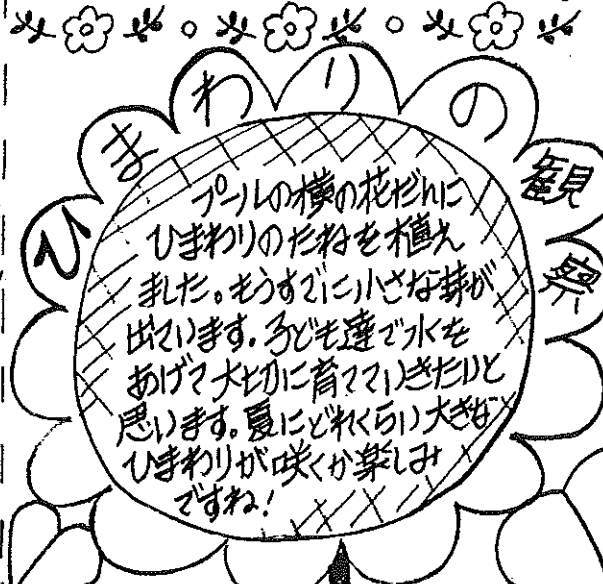 ひまわりの観察
プールの横の花だんに
ひまわりのたねを植え
ました。もうすでに小さな芽が
出ています。子ども達で水を
あげて大切に育てていきたいと
思います。夏にどれくらい大きな
ひまわりが咲くか楽しみ
ですね!